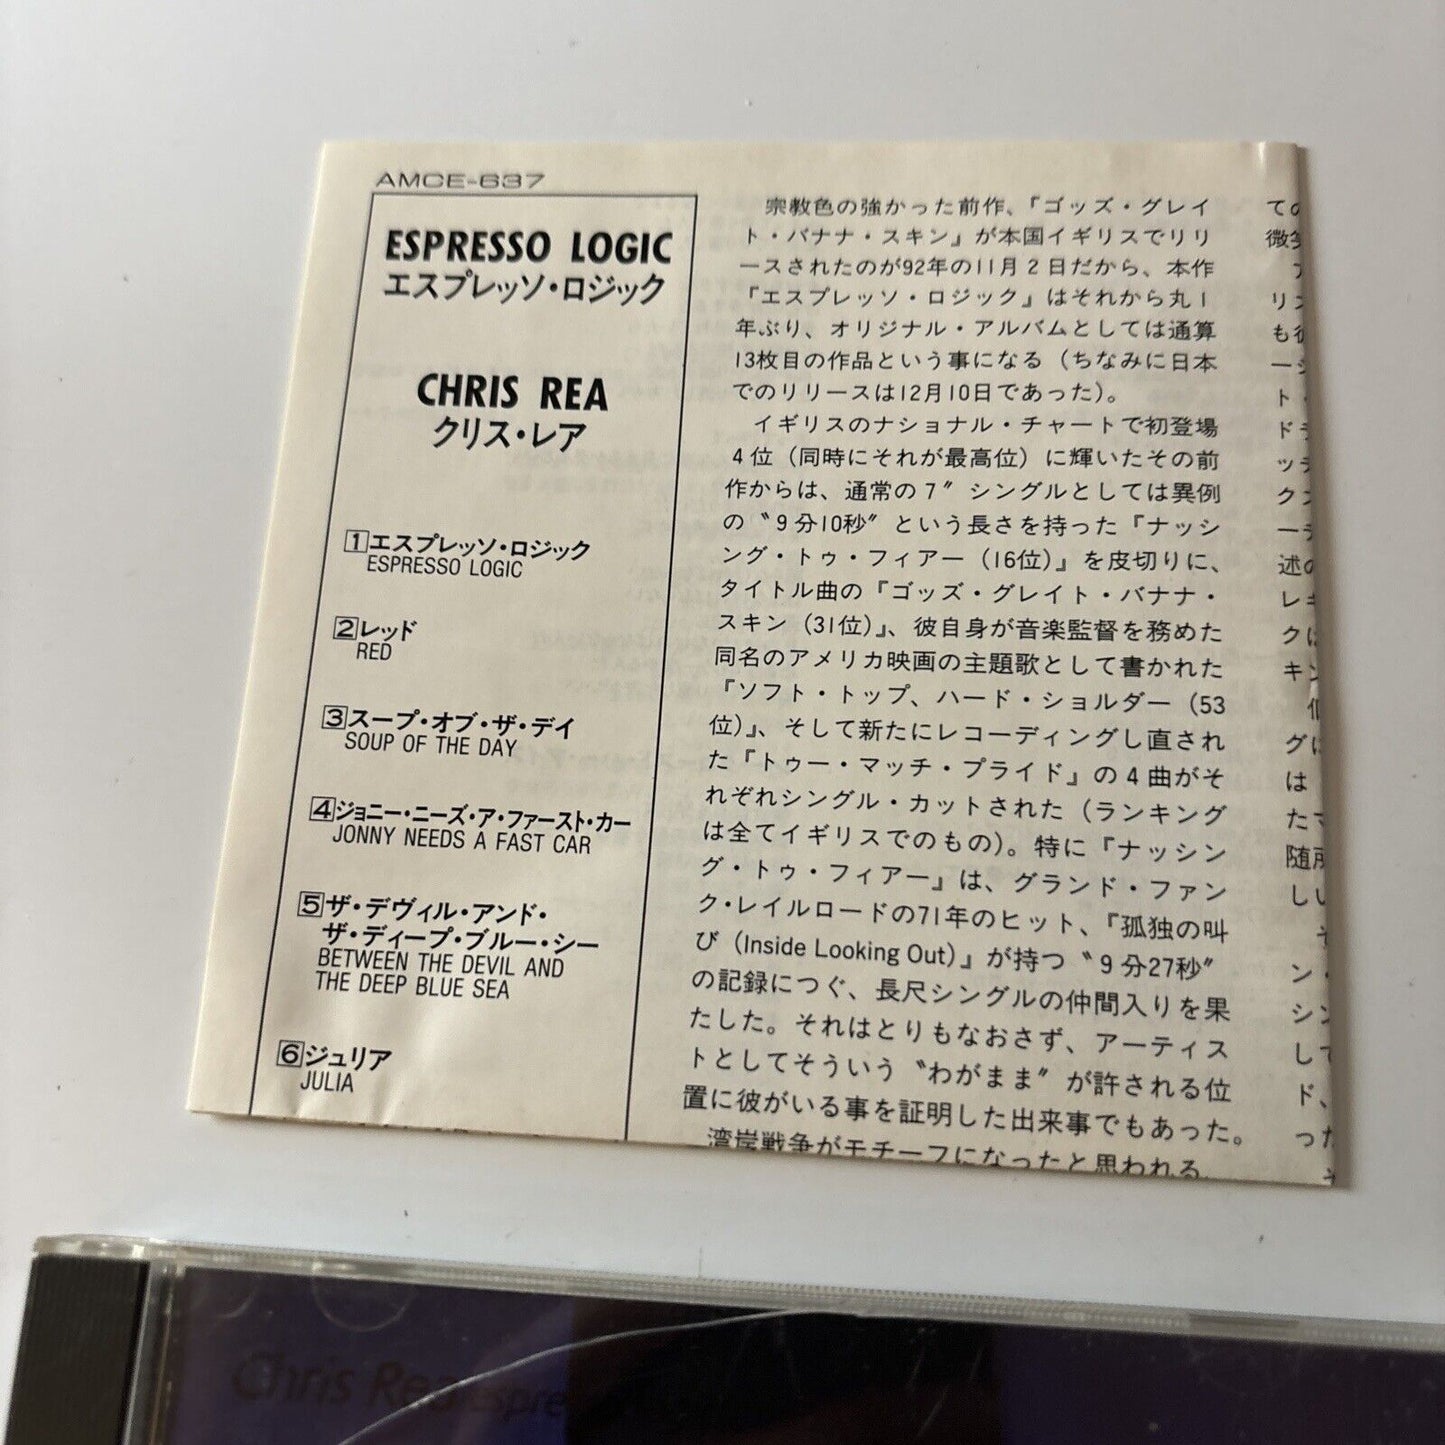 AMCE-637
ESPRESSO LOGIC
エスプレッソ・ロジック
CHRIS REA
クリス・レア
1エスプレッソ・ロジック
ESPRESSO LOGIC
2レッド
RED
3スープ・オブ・ザ・デイ
SOUP OF THE DAY
4ジョニー・ニーズ・ア・ファースト・カー
JONNY NEEDS A FAST CAR
5ザ・デヴィル・アンド・
ザ・ディープ・ブルー・シー
BETWEEN THE DEVIL AND
THE DEEP BLUE SEA
6ジュリア
JULIA
宗教色の強かった前作、『ゴッズ・グレイ
ト・バナナ・スキン』が本国イギリスでリリ
ースされたのが92年の11月2日だから、本作
『エスプレッソ・ロジック』はそれから丸1
年ぶり、オリジナル・アルバムとしては通算
13枚目の作品という事になる（ちなみに日本
でのリリースは12月10日であった）。
イギリスのナショナル・チャートで初登場
4位（同時にそれが最高位）に輝いたその前
作からは、通常の7〃シングルとしては異例
の〝9分10秒〟という長さを持った『ナッシ
ング・トゥ・フィアー（16位）』を皮切りに、
タイトル曲の『ゴッズ・グレイト・バナナ・
スキン（31位）』、彼自身が音楽監督を務めた
同名のアメリカ映画の主題歌として書かれた
『ソフト・トップ、ハード・ショルダー（53
位）』、そして新たにレコーディングし直され
た『トゥー・マッチ・プライド』の4曲がそ
れぞれシングル・カットされた（ランキング
は全てイギリスでのもの）。特に『ナッシン
グ・トゥ・フィアー』は、グランド・ファン
ク・レイルロードの71年のヒット、『孤独の叫
び（Inside Looking Out）』が持つ〝9分27秒〟
の記録につぐ、長尺シングルの仲間入りを果
たした。それはとりもなおさず、アーティス
トとしてそういう〝わがまま〟が許される位
置に彼がいる事を証明した出来事でもあった。
湾岸戦争がモチーフになったと思われる
ての
微笑
リス
も
ト・
ッ
ク
述の
レ
クは
キン
グに
は
た
随所
しい
ン・
シン
して
ド、
った
Chris Rea Espre